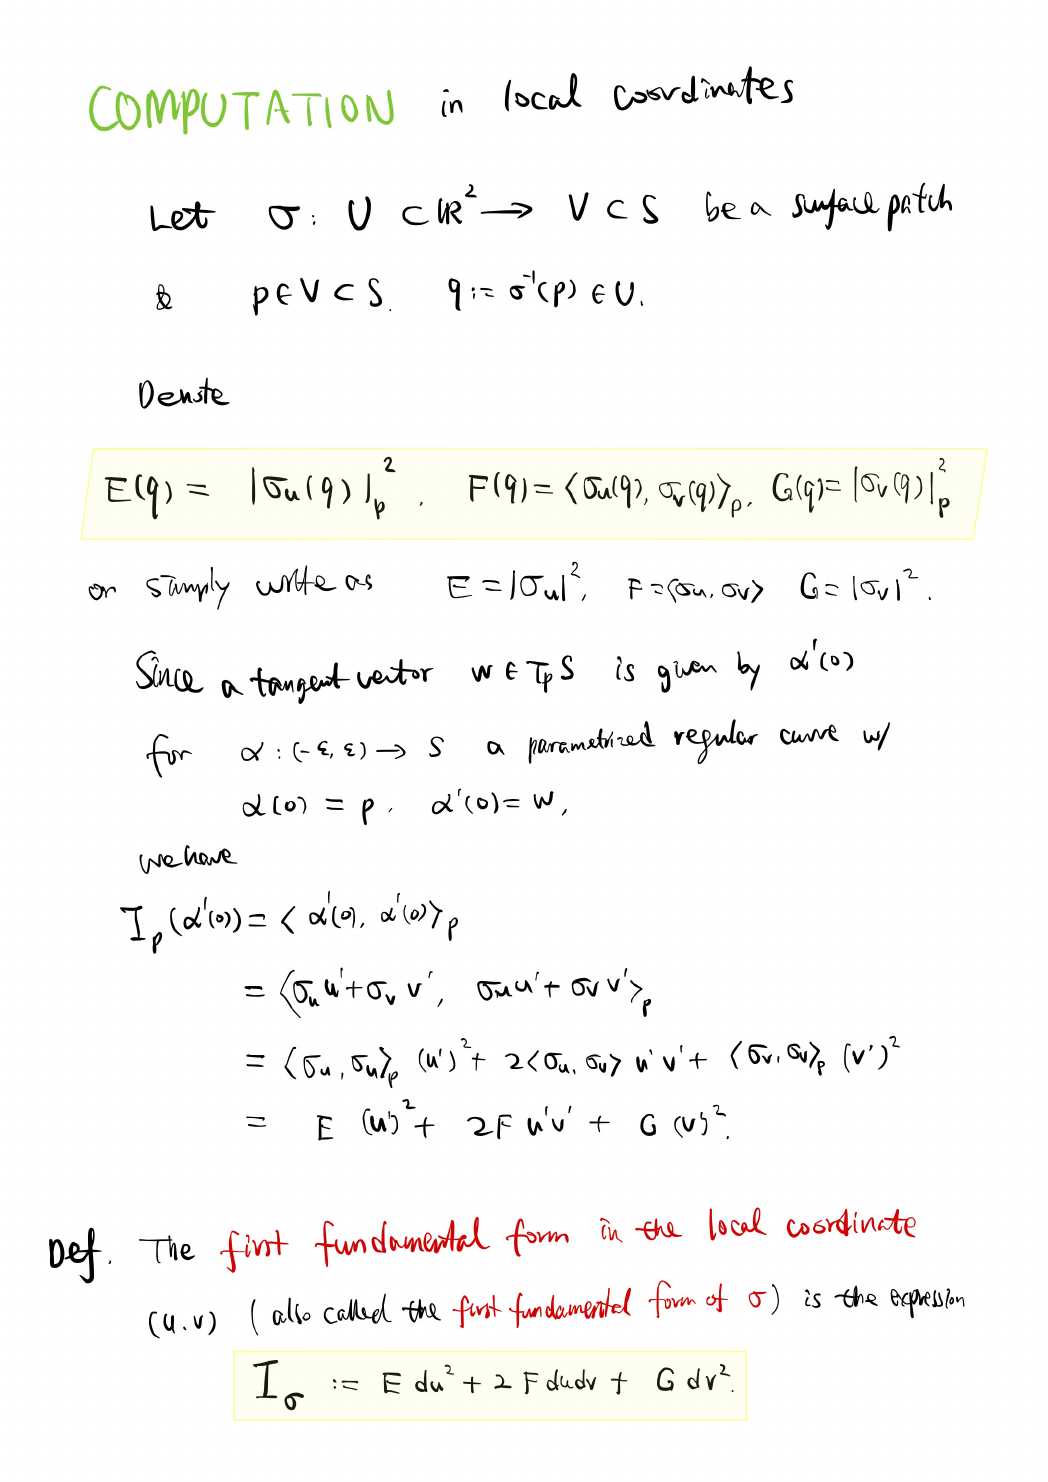 COMPUTATION in local coordinates
Let σ: U ⊂ ℝ² → V ⊂ S be a surface patch
& p ∈ V ⊂ S. q := σ⁻¹(p) ∈ U.
Denote
E(q) = |σu(q)|²_p, F(q) = ⟨σu(q), σv(q)⟩_p, G(q) = |σv(q)|²_p
or simply write as E = |σu|², F = ⟨σu, σv⟩ G = |σv|².
Since a tangent vector w ∈ TpS is given by α'(0)
for α: (-ε, ε) → S a parametrized regular curve w/
α(0) = p, α'(0) = w,
we have
I_p(α'(0)) = ⟨α'(0), α'(0)⟩_p
= ⟨σu u' + σv v', σu u' + σv v'⟩_p
= ⟨σu, σu⟩_p (u')² + 2⟨σu, σv⟩ u'v' + ⟨σv, σv⟩_p (v')²
= E (u')² + 2F u'v' + G (v')².
Def. The first fundamental form in the local coordinate
(u.v) (also called the first fundamental form of σ) is the expression
I_σ := E du² + 2F dudv + G dv².